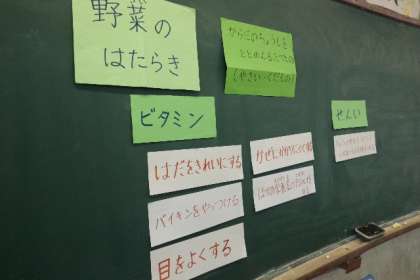 野菜の
はたらき
からだのちょうしを
ととのえるはたらき
(やさい・くだもの)
ビタミン
せんい
はだをきれいにする
バイキンをやっつける
目をよくする
かぜにかかりにくくする